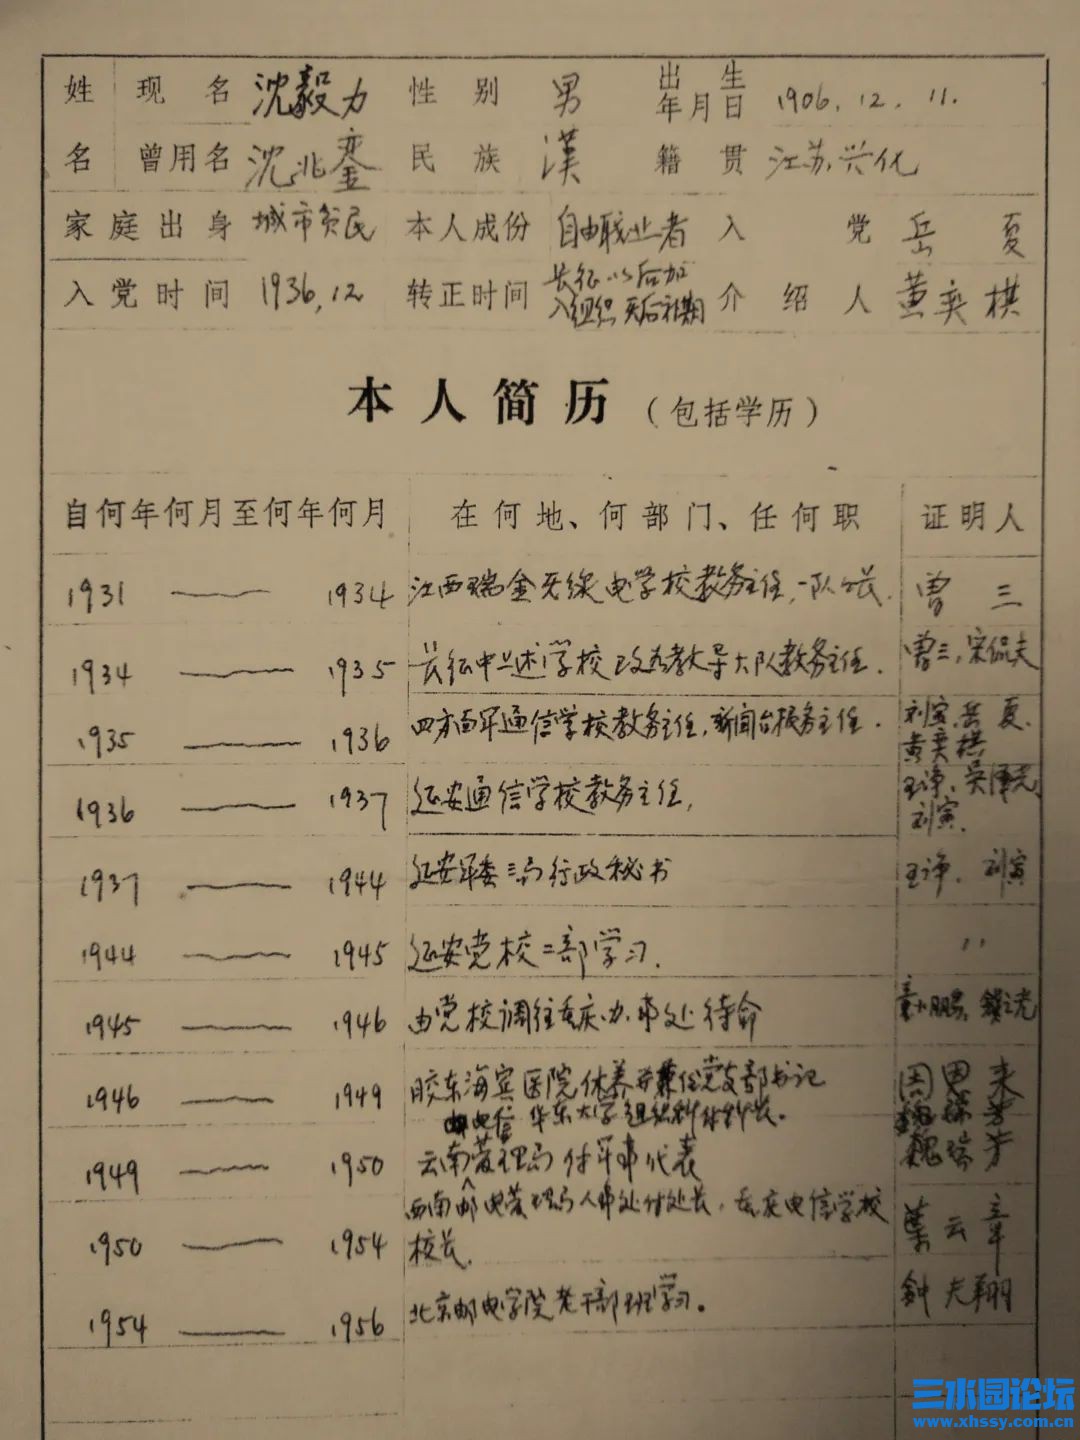 姓 现名 沈毅力 性别 男 出生年月日 1906.12.11.
名 曾用名 沈兆銮 民族 漢 籍贯 江苏兴化
家庭出身 城市贫民 本人成份 自由职业者 入党 岳夏
入党时间 1936.12 转正时间 长征以后加入组织 无后补期 介绍人 黄奕棋
本人简历（包括学历）
自何年何月至何年何月 在何地、何部门、任何职 证明人
1931 —— 1934 江西瑞金无线电学校教务主任, 一队队长. 曾三
1934 —— 1935 长征中上述学校改为教导大队教务主任. 曾三, 宋侃夫
1935 —— 1936 四方面军通信学校教务主任, 新闻台报务主任. 刘寅 岳夏. 黄奕棋
1936 —— 1937 延安通信学校教务主任, 王诤. 吴泽光 刘寅.
1937 —— 1944 延安军委三局行政秘书 王诤. 刘寅
1944 —— 1945 延安党校二部学习. 〃
1945 —— 1946 由党校调往重庆办事处待命 童小鹏,
1946 —— 1949 胶东海宾医院休养并兼任党支部书记
华东大学组织科付科长.
1949 —— 1950 云南邮电管理局付军事代表 魏瑞芳
1950 —— 1954 西南邮电管理局人事处付处长, 重庆电信学校校长. 叶云章
1954 —— 1956 北京邮电学院老干部班学习。 钟夫翔
三水园论坛
www.xhssy.com.cn